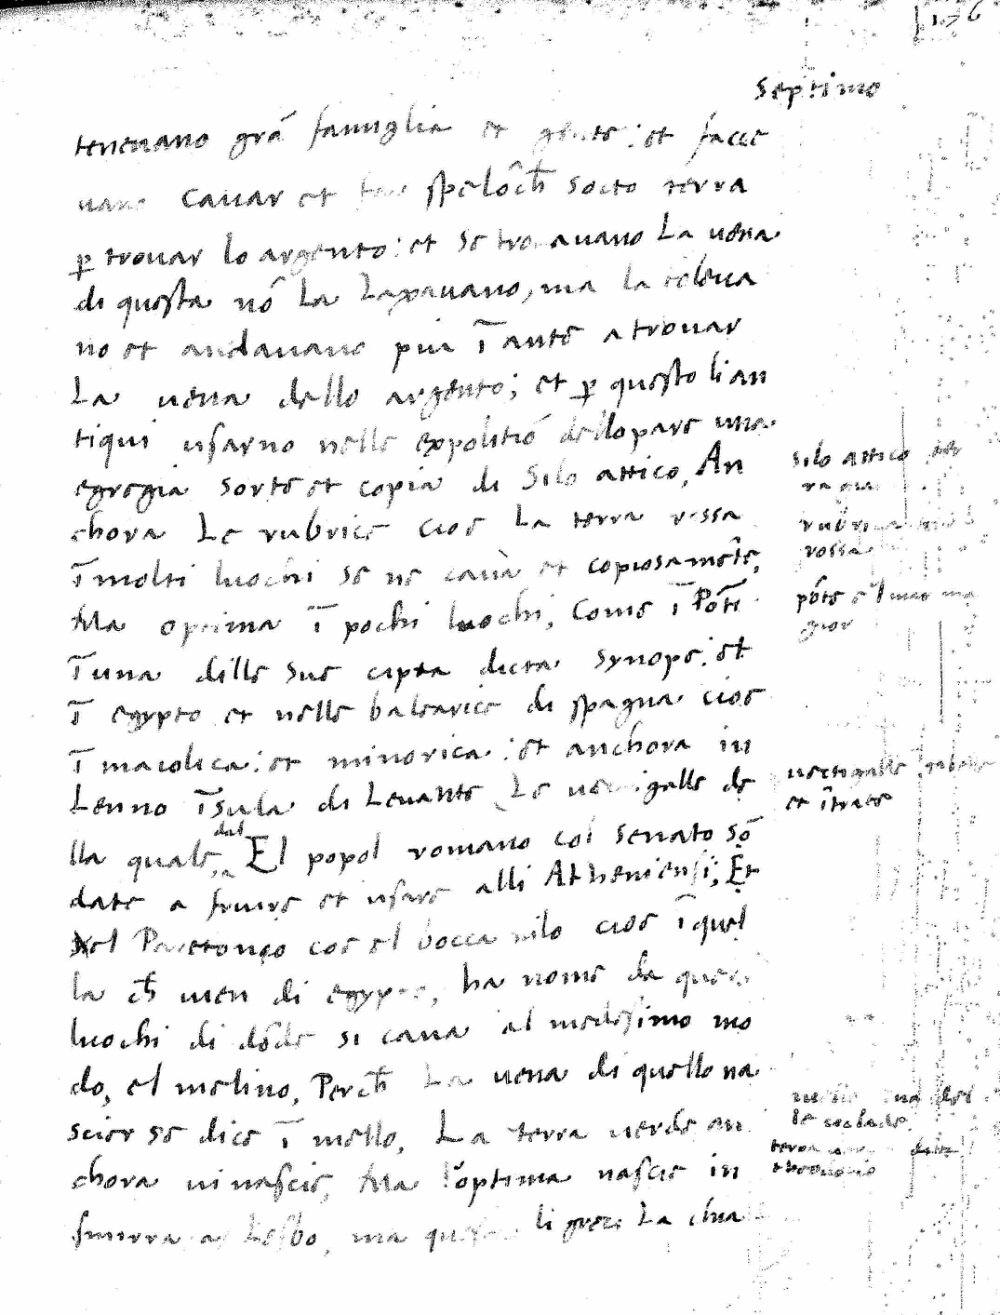 176
Septimo
teneuano grã famiglia et gente: et face
uano cauar et far speloc̃h socto terra
ꝑ trouar lo argento: et se trouauano La uena
di questa nõ La Laxauano, ma la teleua
no et andauano piu ĩ ante a trouar
La uena dello argento; et ꝑ questo li an
tiqui usarno nelle expolitiõ dellopare una
egregia sorte et copia di Silo attico, An
chora Le rubrice cioe La terra rossa
ĩ molti luochi se ne caua et copiosamẽte,
Ma optima ĩ pochi luochi, Come ĩ Põti
ĩ una dille sue cipta dicta synope: et
ĩ egypto et nelle balearice di spagna cioe
ĩ maiolica: et minorica: et anchora in
Lenno ĩsula di Leuante Le uectigalle de
lla quale, dal El popol romano col senato sõ
date a fruire et usare alli Atheniensi; Et
el Paretonio coe el bocca nilo cioe ĩ quel
la c̃h uien di egypto, ha nome da quei
luochi di dõde si caua al medesimo mo
do, el melino, Perc̃h La uena di quello na
scier se dice ĩ mello, La terra uerde an
chora ui nascie, Ma l'optima nascie in
smirra a Lesbo, ma questa li greci La chia
silo attico ter
ra
rubrica
rossa
põte e'l mar ma
gior
uectigalle
et ĩtrate
del
le
terra